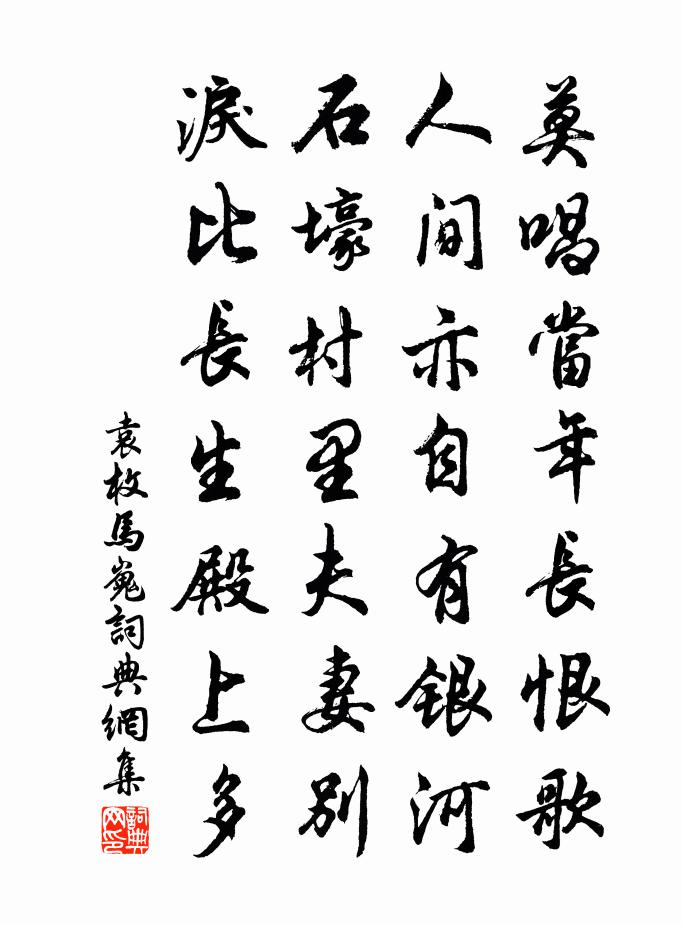 莫唱當年長恨歌
人間亦自有銀河
石壕村里夫妻別
淚比長生殿上多
袁枚馬嵬詞典網集
詞典网印